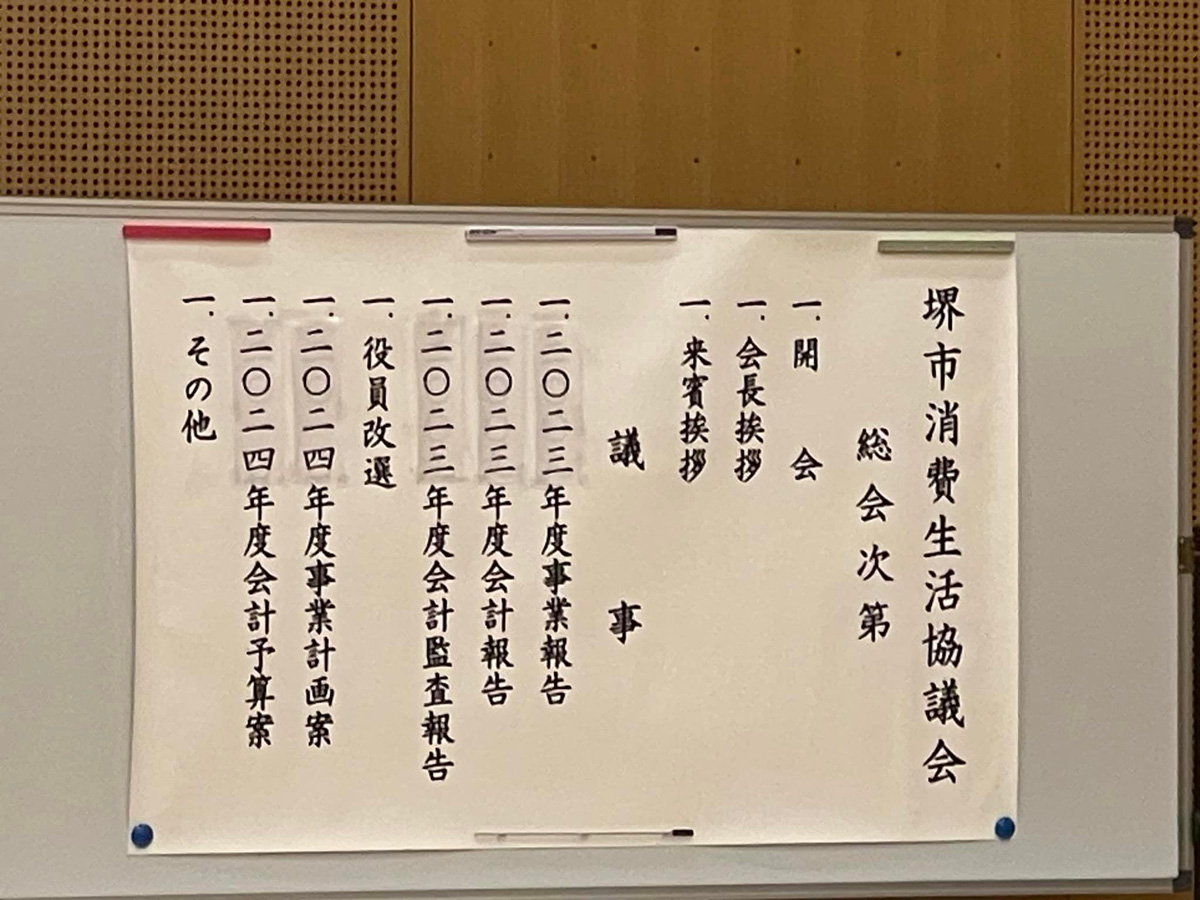 堺市消費生活協議会
総会次第
一.開 会
一.会長挨拶
一.来賓挨拶
議 事
一.二〇二三年度事業報告
一.二〇二三年度会計報告
一.二〇二三年度会計監査報告
一.役員改選
一.二〇二四年度事業計画案
一.二〇二四年度会計予算案
一.その他